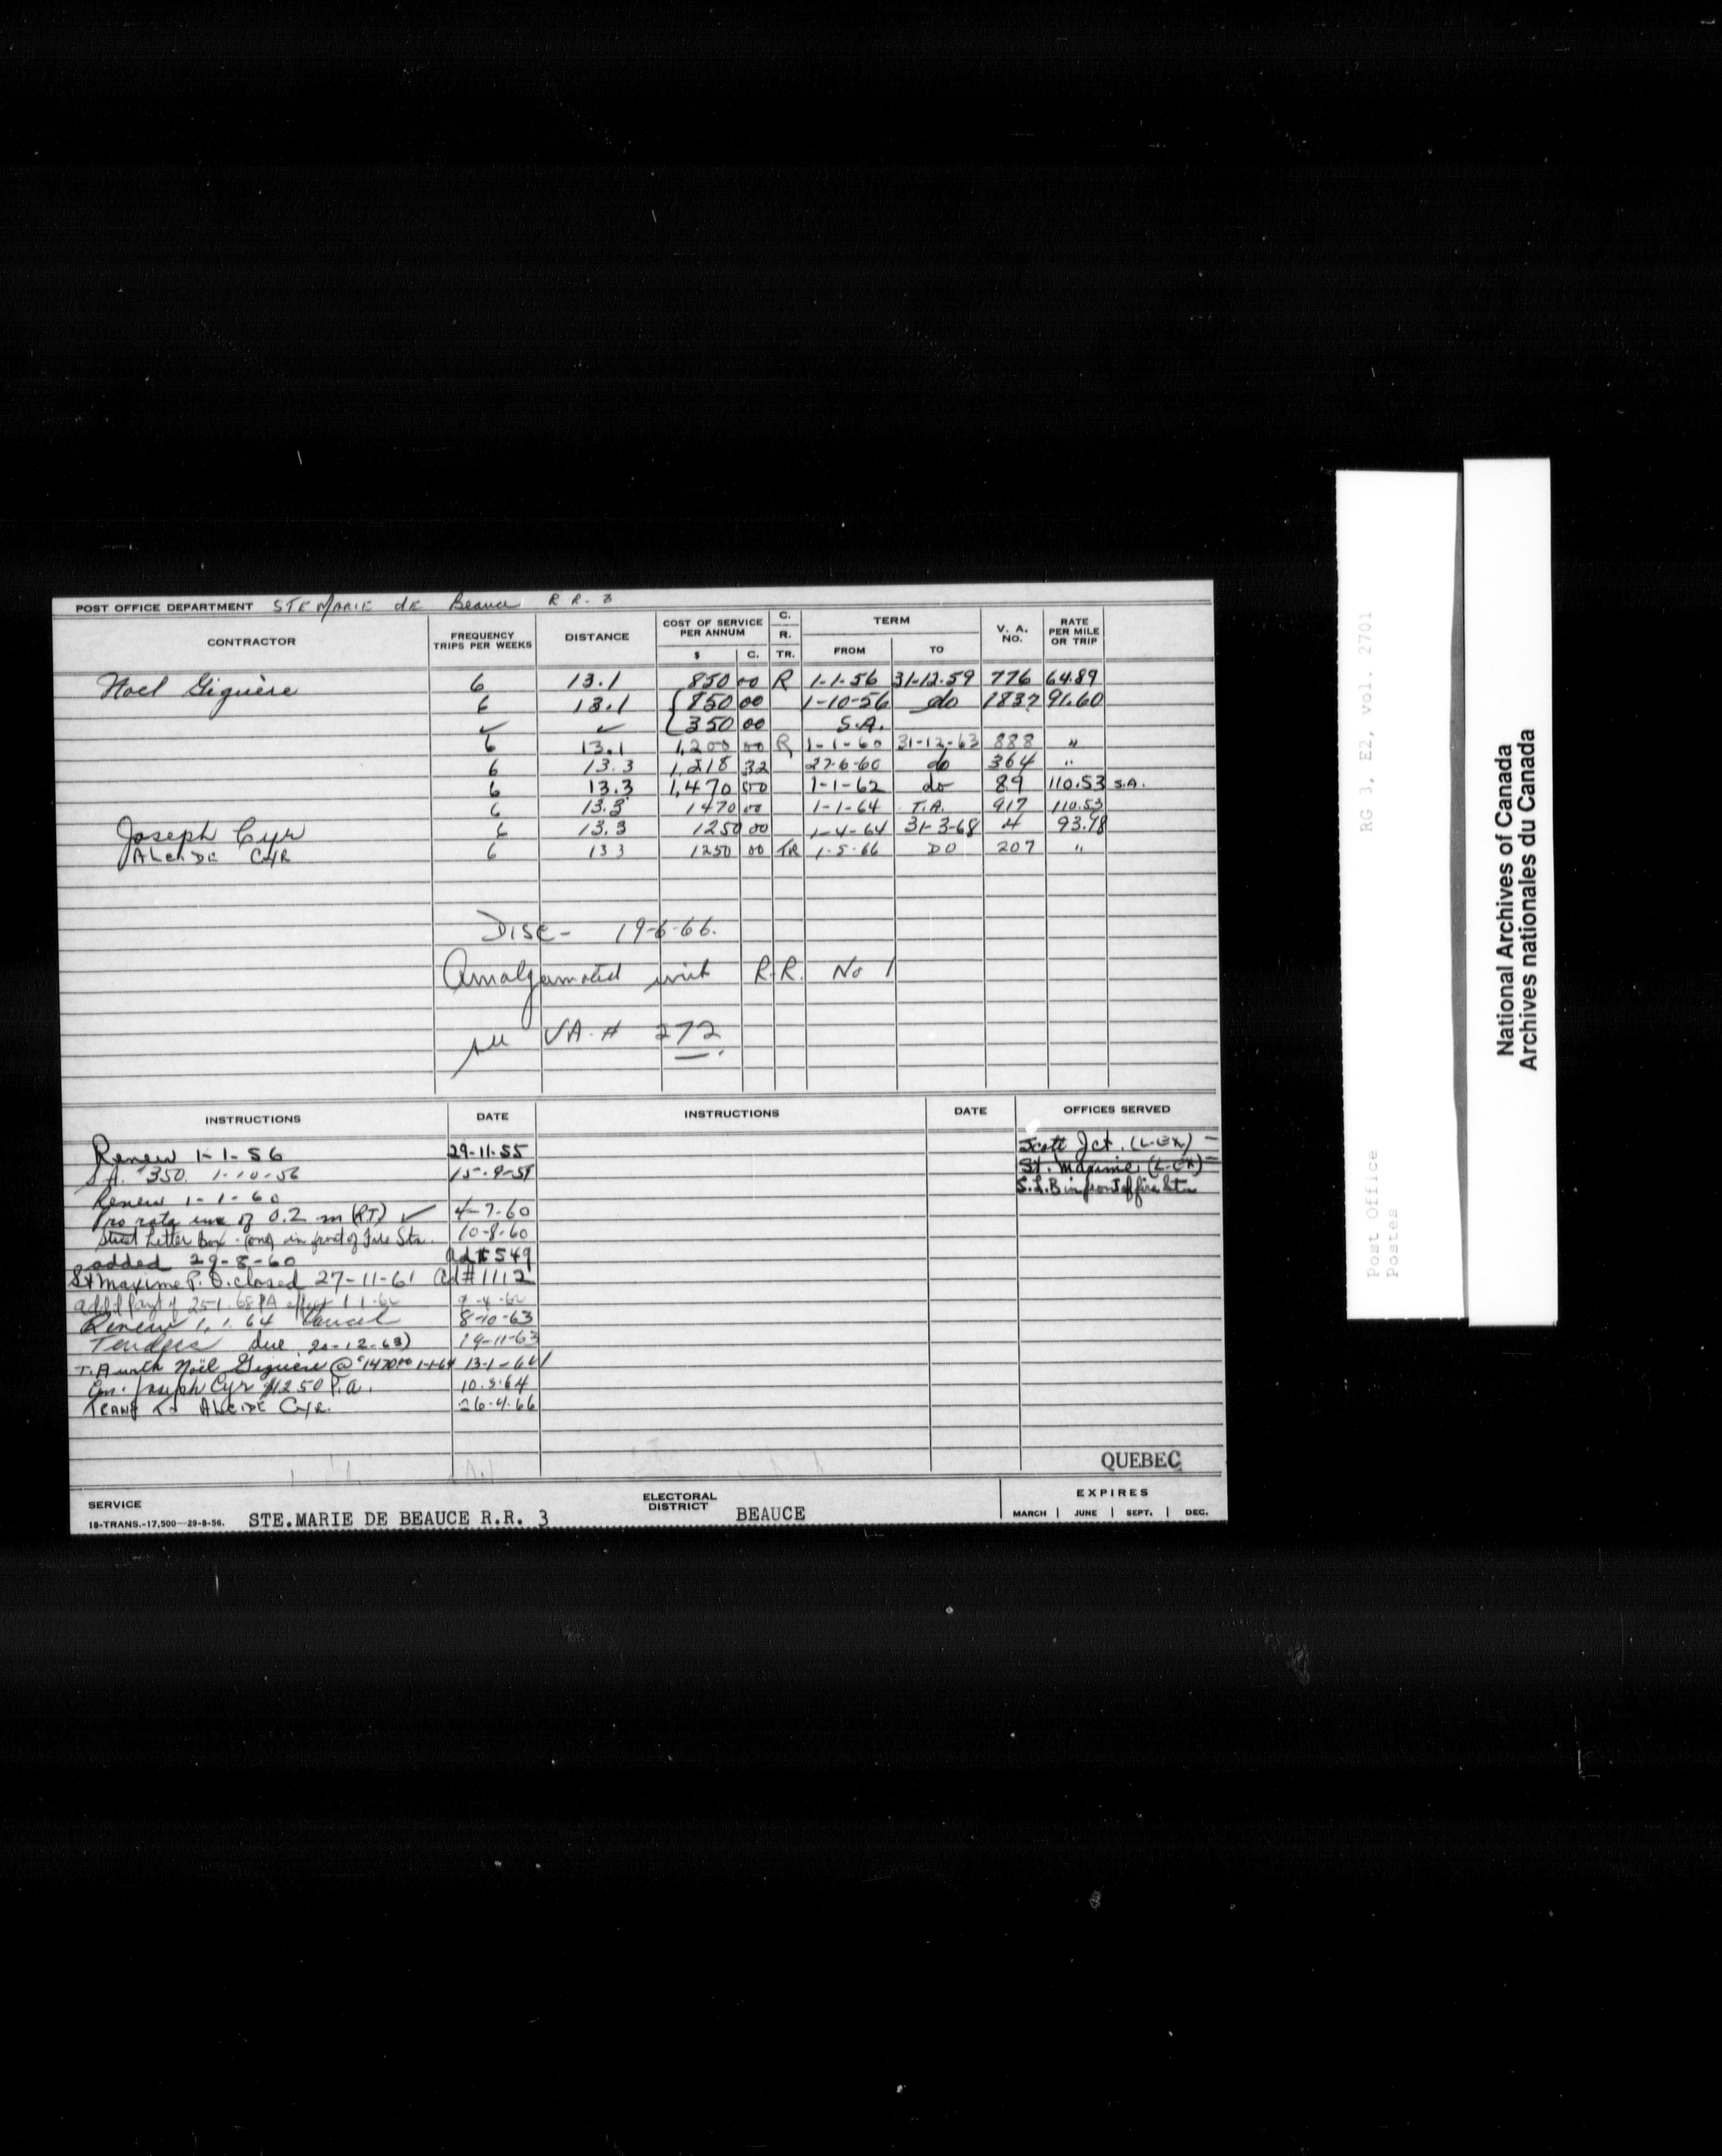 POST OFFICE DEPARTMENT STE MARIE de Beauce R R. 3
CONTRACTOR FREQUENCY TRIPS PER WEEKS DISTANCE COST OF SERVICE PER ANNUM $ C. C. R. TR. TERM FROM TO V. A. NO. RATE PER MILE OR TRIP
Noel Giguère 6 13.1 850 00 R 1-1-56 31-12-59 776 64.89
6 13.1 { 850 00 1-10-56 do 1837 91.60
✓ ✓ { 350 00 S.A.
6 13.1 1,200 00 R 1-1-60 31-12-63 888 "
6 13.3 1,218 32 27-6-60 do 364 "
6 13.3 1,470 00 1-1-62 do 89 110.53 S.A.
6 13.3 1470 00 1-1-64 T.A. 917 110.53
Joseph Cyr 6 13.3 1250 00 1-4-64 31-3-68 4 93.98
ALCIDE CYR 6 133 1250 00 TR 1-5-66 DO 207 "
DISC- 19-6-66.
Amalgamated with R.R. No 1
see VA. # 272
INSTRUCTIONS DATE INSTRUCTIONS DATE OFFICES SERVED
Renew 1-1-56 29-11-55 Scott Jct. (L-EX) -
S.A. $350. 1-10-56 15-9-58 St. Maxime (L-EX) -
Renew 1-1-60 S.L.B in front of fire Stn
Pro rata inc of 0.2 m (RT) ✓ 4-7-60
Street Letter Box - (one) in front of Fire Stn. 10-8-60
added 29-8-60 Ad # 549
St Maxime P.O. closed 27-11-61 Ad # 1112
add'l payt of 251.68 PA effect 1-1-62 9-4-62
Renew 1.1.64 Cancel 8-10-63
Tenders due 20-12-63) 19-11-63
T.A with Noël Giguère @ $1470.00 1-1-64 13-1-64
Joseph Cyr $1250 P.a. 10.3.64
TRANS TO ALCIDE CYR. 26-4-66
QUEBEC
SERVICE
18-TRANS.-17,500—29-8-56. STE.MARIE DE BEAUCE R.R. 3 ELECTORAL DISTRICT BEAUCE EXPIRES MARCH | JUNE | SEPT. | DEC.
RG 3, E2, vol. 2701
Post Office
Postes
National Archives of Canada
Archives nationales du Canada